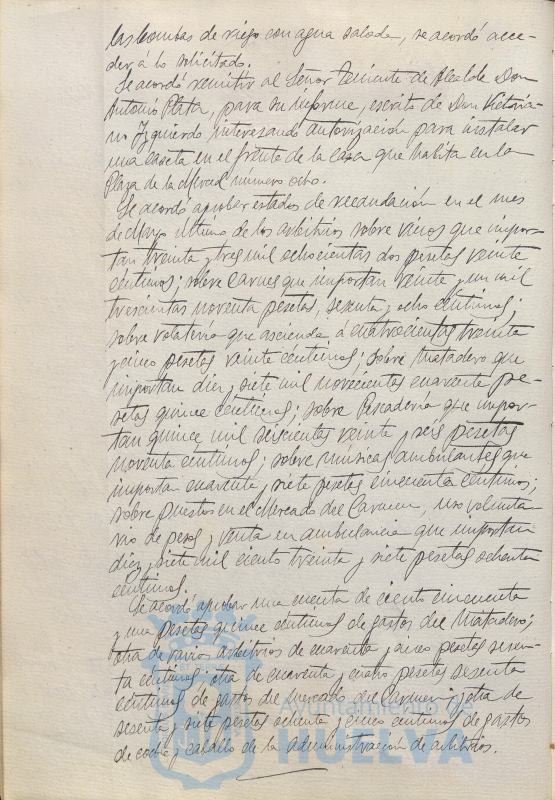 las bombas de riego con agua salada, se acordó acce-
der á lo solicitado.
Se acordó remitir al Señor Teniente de Alcalde Don
Antonio Plata, para su informe, escrito de Don Victoria-
no Izquierdo interesando autorización para instalar
una caseta en el frente de la casa que habita en la
Plaza de la Merced número ocho.
Se acordó aprobar estados de recaudación en el mes
de Mayo último de los arbitrios sobre vinos que impor-
tan treinta y tres mil ochocientas dos pesetas veinte
céntimos; sobre Carnes que importan veinte y un mil
trescientas noventa pesetas, sesenta y ocho céntimos;
sobre volatería que asciende á cuatrocientas treinta
y cinco pesetas veinte céntimos; sobre Matadero que
importan diez y siete mil novecientas cuarenta pe-
setas quince céntimos; sobre Pescadería que impor-
tan quince mil seiscientas veinte y seis pesetas
noventa céntimos; sobre músicas ambulantes que
importan cuarenta y siete pesetas cincuenta céntimos;
sobre puestos en el Mercado del Carmen, uso volunta-
rio de pesas y venta en ambulancia que importan
diez y siete mil ciento treinta y siete pesetas ochenta
céntimos.
Se acordó aprobar una cuenta de ciento cincuenta
y una pesetas quince céntimos de gastos del Matadero;
otra de varios arbitrios de cuarenta y cinco pesetas sesen-
ta céntimos; otra de cuarenta y cuatro pesetas sesenta
céntimos de gastos del Mercado del Carmen y otra de
sesenta y siete pesetas ochenta y cinco céntimos de gastos
de coche y caballo de la administración de arbitrios.
Ayuntamiento de
HUELVA